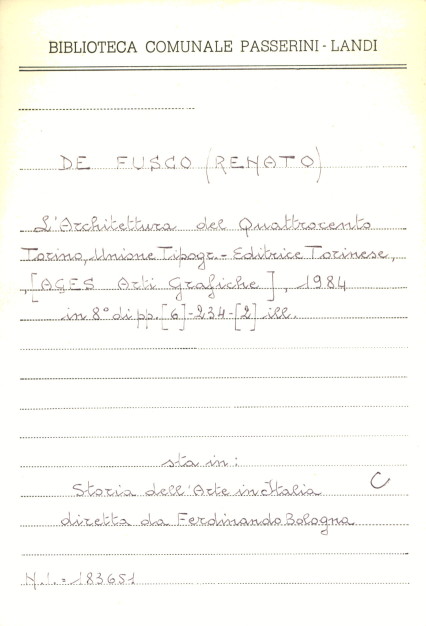 BIBLIOTECA COMUNALE PASSERINI - LANDI
DE FUSCO (RENATO)
L'Architettura del Quattrocento
Torino, Unione Tipogr. - Editrice Torinese,
[AGES Arti Grafiche], 1984
in 8° di pp. [6]-234-[2] ill.
sta in:
Storia dell'Arte in Italia
C
diretta da Ferdinando Bologna
N.I. = 183651